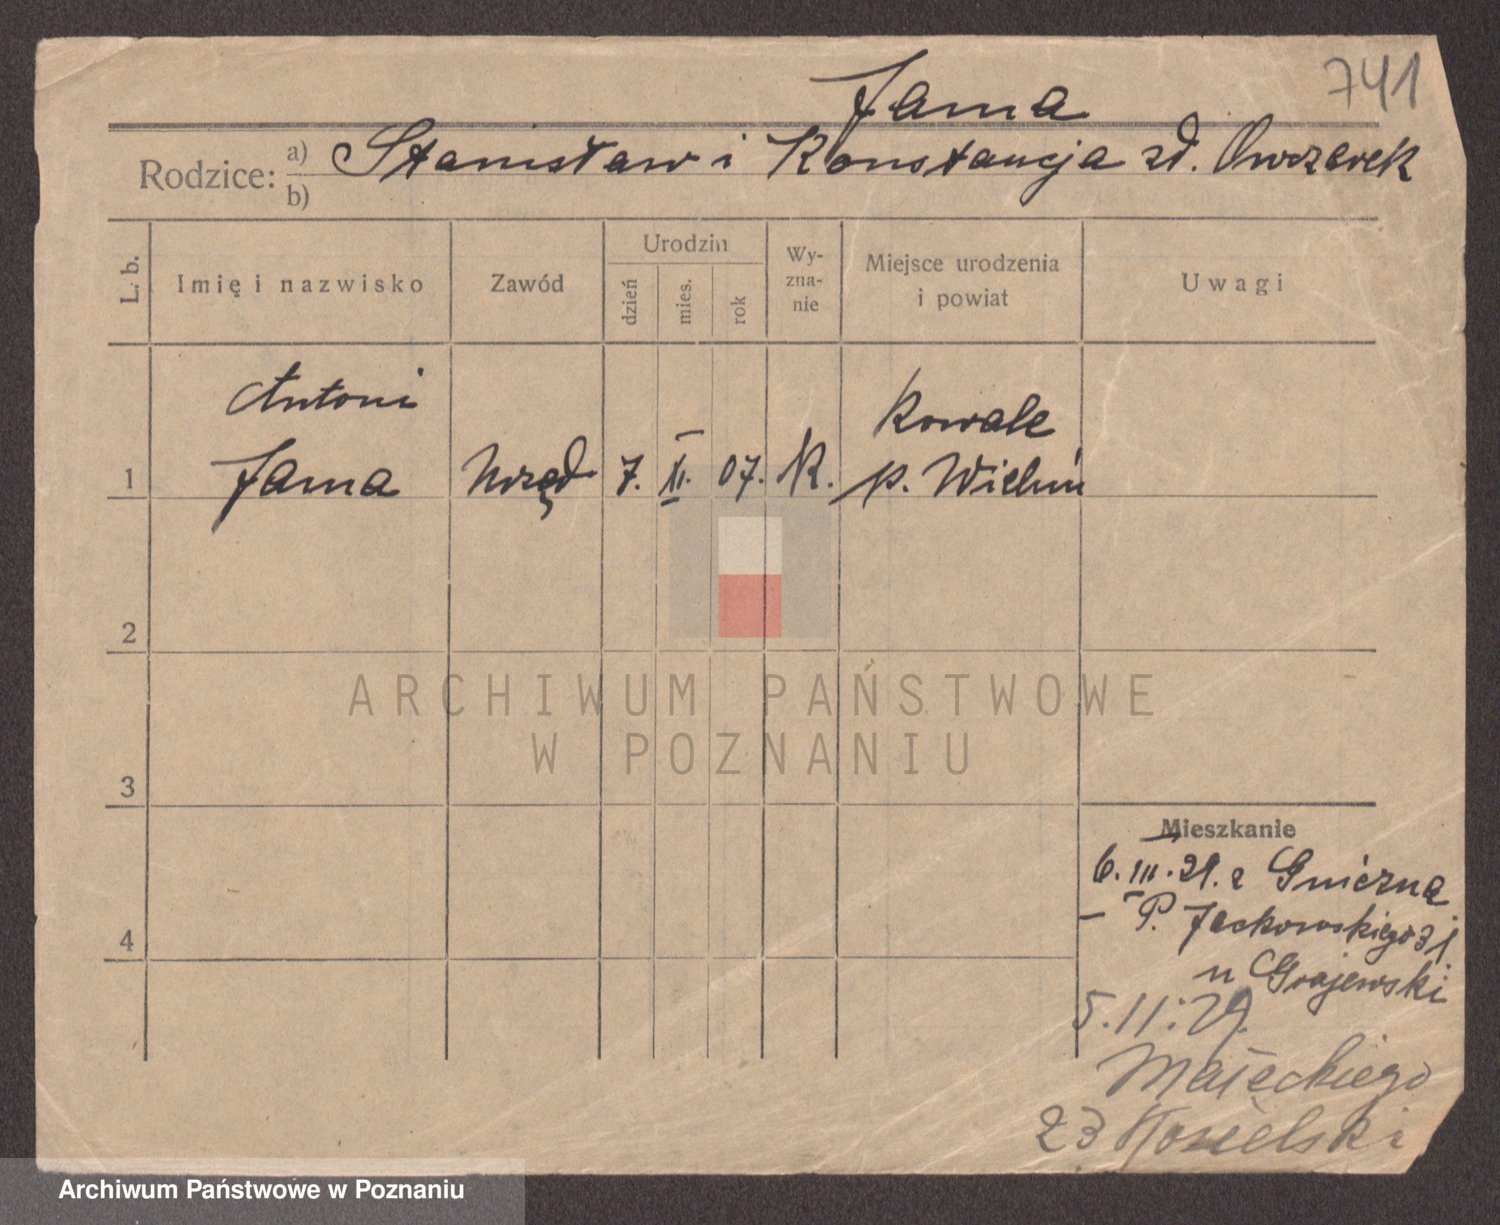 741
Jama
Rodzice: a) Stanisław i Konstancja zd. Owczarek
b)
L. b.
Imię i nazwisko
Zawód
Urodzin
dzień
mies.
rok
Wy-
zna-
nie
Miejsce urodzenia
i powiat
Uwagi
Antoni
Kowale
1 Jama Urzęd 7. 07. K. p. Wieluń
2
ARCHIWUM PAŃSTWOWE
W POZNANIU
3
Mieszkanie
6. III. 29. z Gniezna
P. Jackowskiego 31
4
u Grajewski
5.11.29.
Małeckiego
23 Kosielski
Archiwum Państwowe w Poznaniu